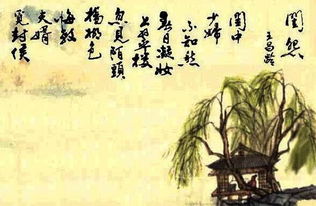 閨怨
王昌齡
閨中
少婦
不知愁
春日凝妝
上翠樓
忽見陌頭
楊柳色
悔教
夫婿
覓封侯